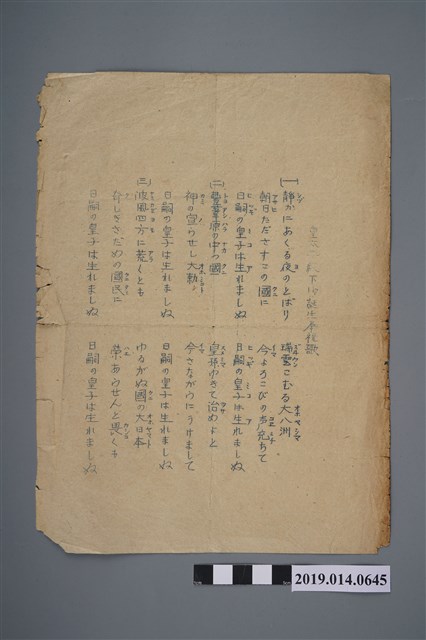 皇太子殿下御誕生奉祝歌
(一)静かにあくる夜のとばり　瑞雲こむる大八洲
朝日たださすこの國に　今よろこびの声充ちて
日嗣の皇子は生れましぬ　日嗣の皇子は生れましぬ
(二)豊葦原の中つ國　皇孫ゆきて治めよと
神の宣らせし大勅　今さながらにうけまして
日嗣の皇子は生れましぬ　日嗣の皇子は生れましぬ
(三)波風四方に荒くとも　ゆるがぬ國の大日本
奇しきさだめの國民に　榮あらせんと畏くも
日嗣の皇子は生れましぬ　日嗣の皇子は生れましぬ
2019.014.0645